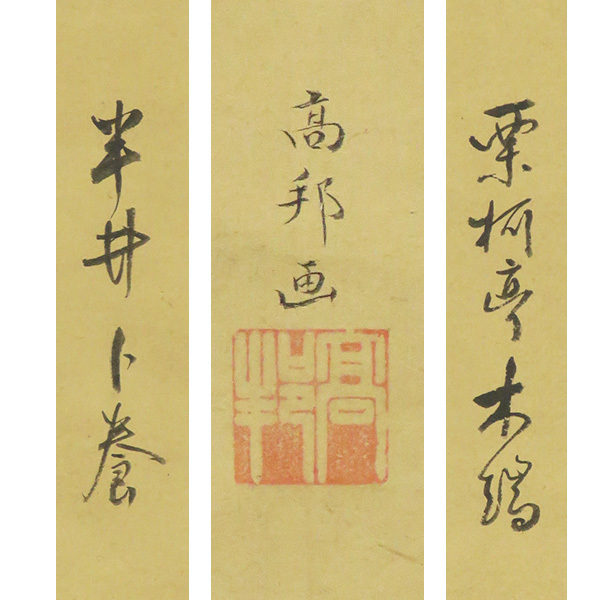 栗柯亭木端
高邦画
高邦
半井卜養